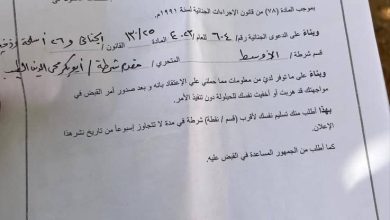 بموجب المادة (٧٨) من قانون الإجراءات الجنائية لسنة ١٩٩١م.
وبناءً على الدعوى الجنائية رقم/ ٦٠٤ للعام/ ٢٠٢٣ المادة ١٣٠/٢٥ القانون/ جنائي و٢٦ أسلحة وذخيرة
قسم شرطة/ الأوسط المتحري/ مقدم شرطة/ أبوبكر محي الدين الطيب
وبناءً على ما توفر لدي من معلومات مما حملني على الإعتقاد بانه و بعد صدور أمر القبض في
مواجهتك قد هربت أو اخفيت نفسك للحيلولة دون تنفيذ الأمر.
بهذا أطلب منك تسليم نفسك لأقرب (قسم / نقطة) شرطة في مدة لا تتجاوز إسبوعاً من تاريخ نشر هذا
الإعلان.
كما أطلب من الجمهور المساعدة في القبض عليه.